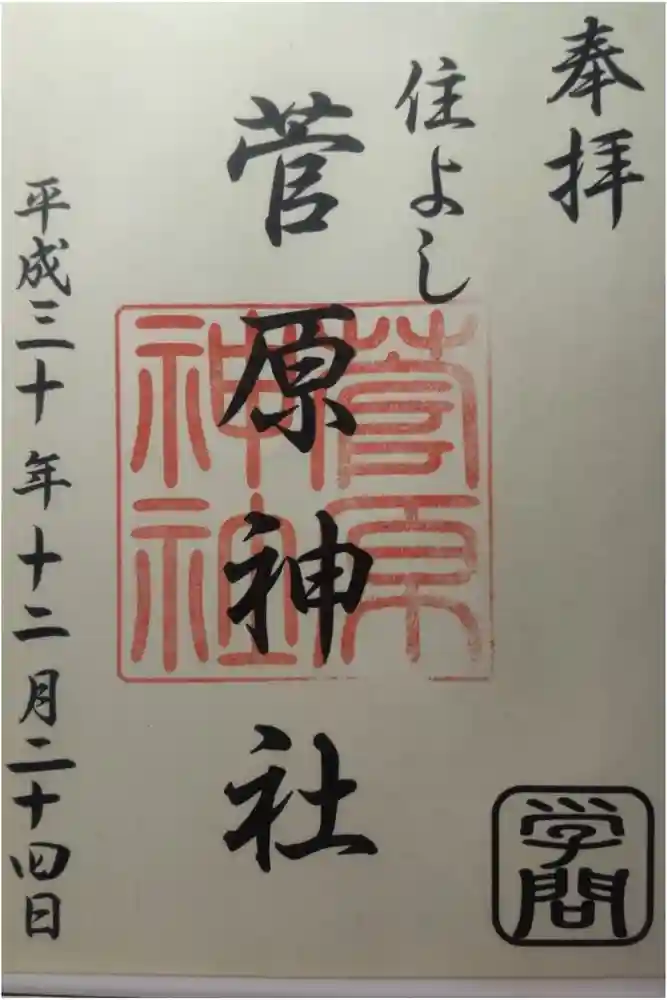 奉拝
住よし
菅原神社
菅原神社
学問
平成三十年十二月二十四日